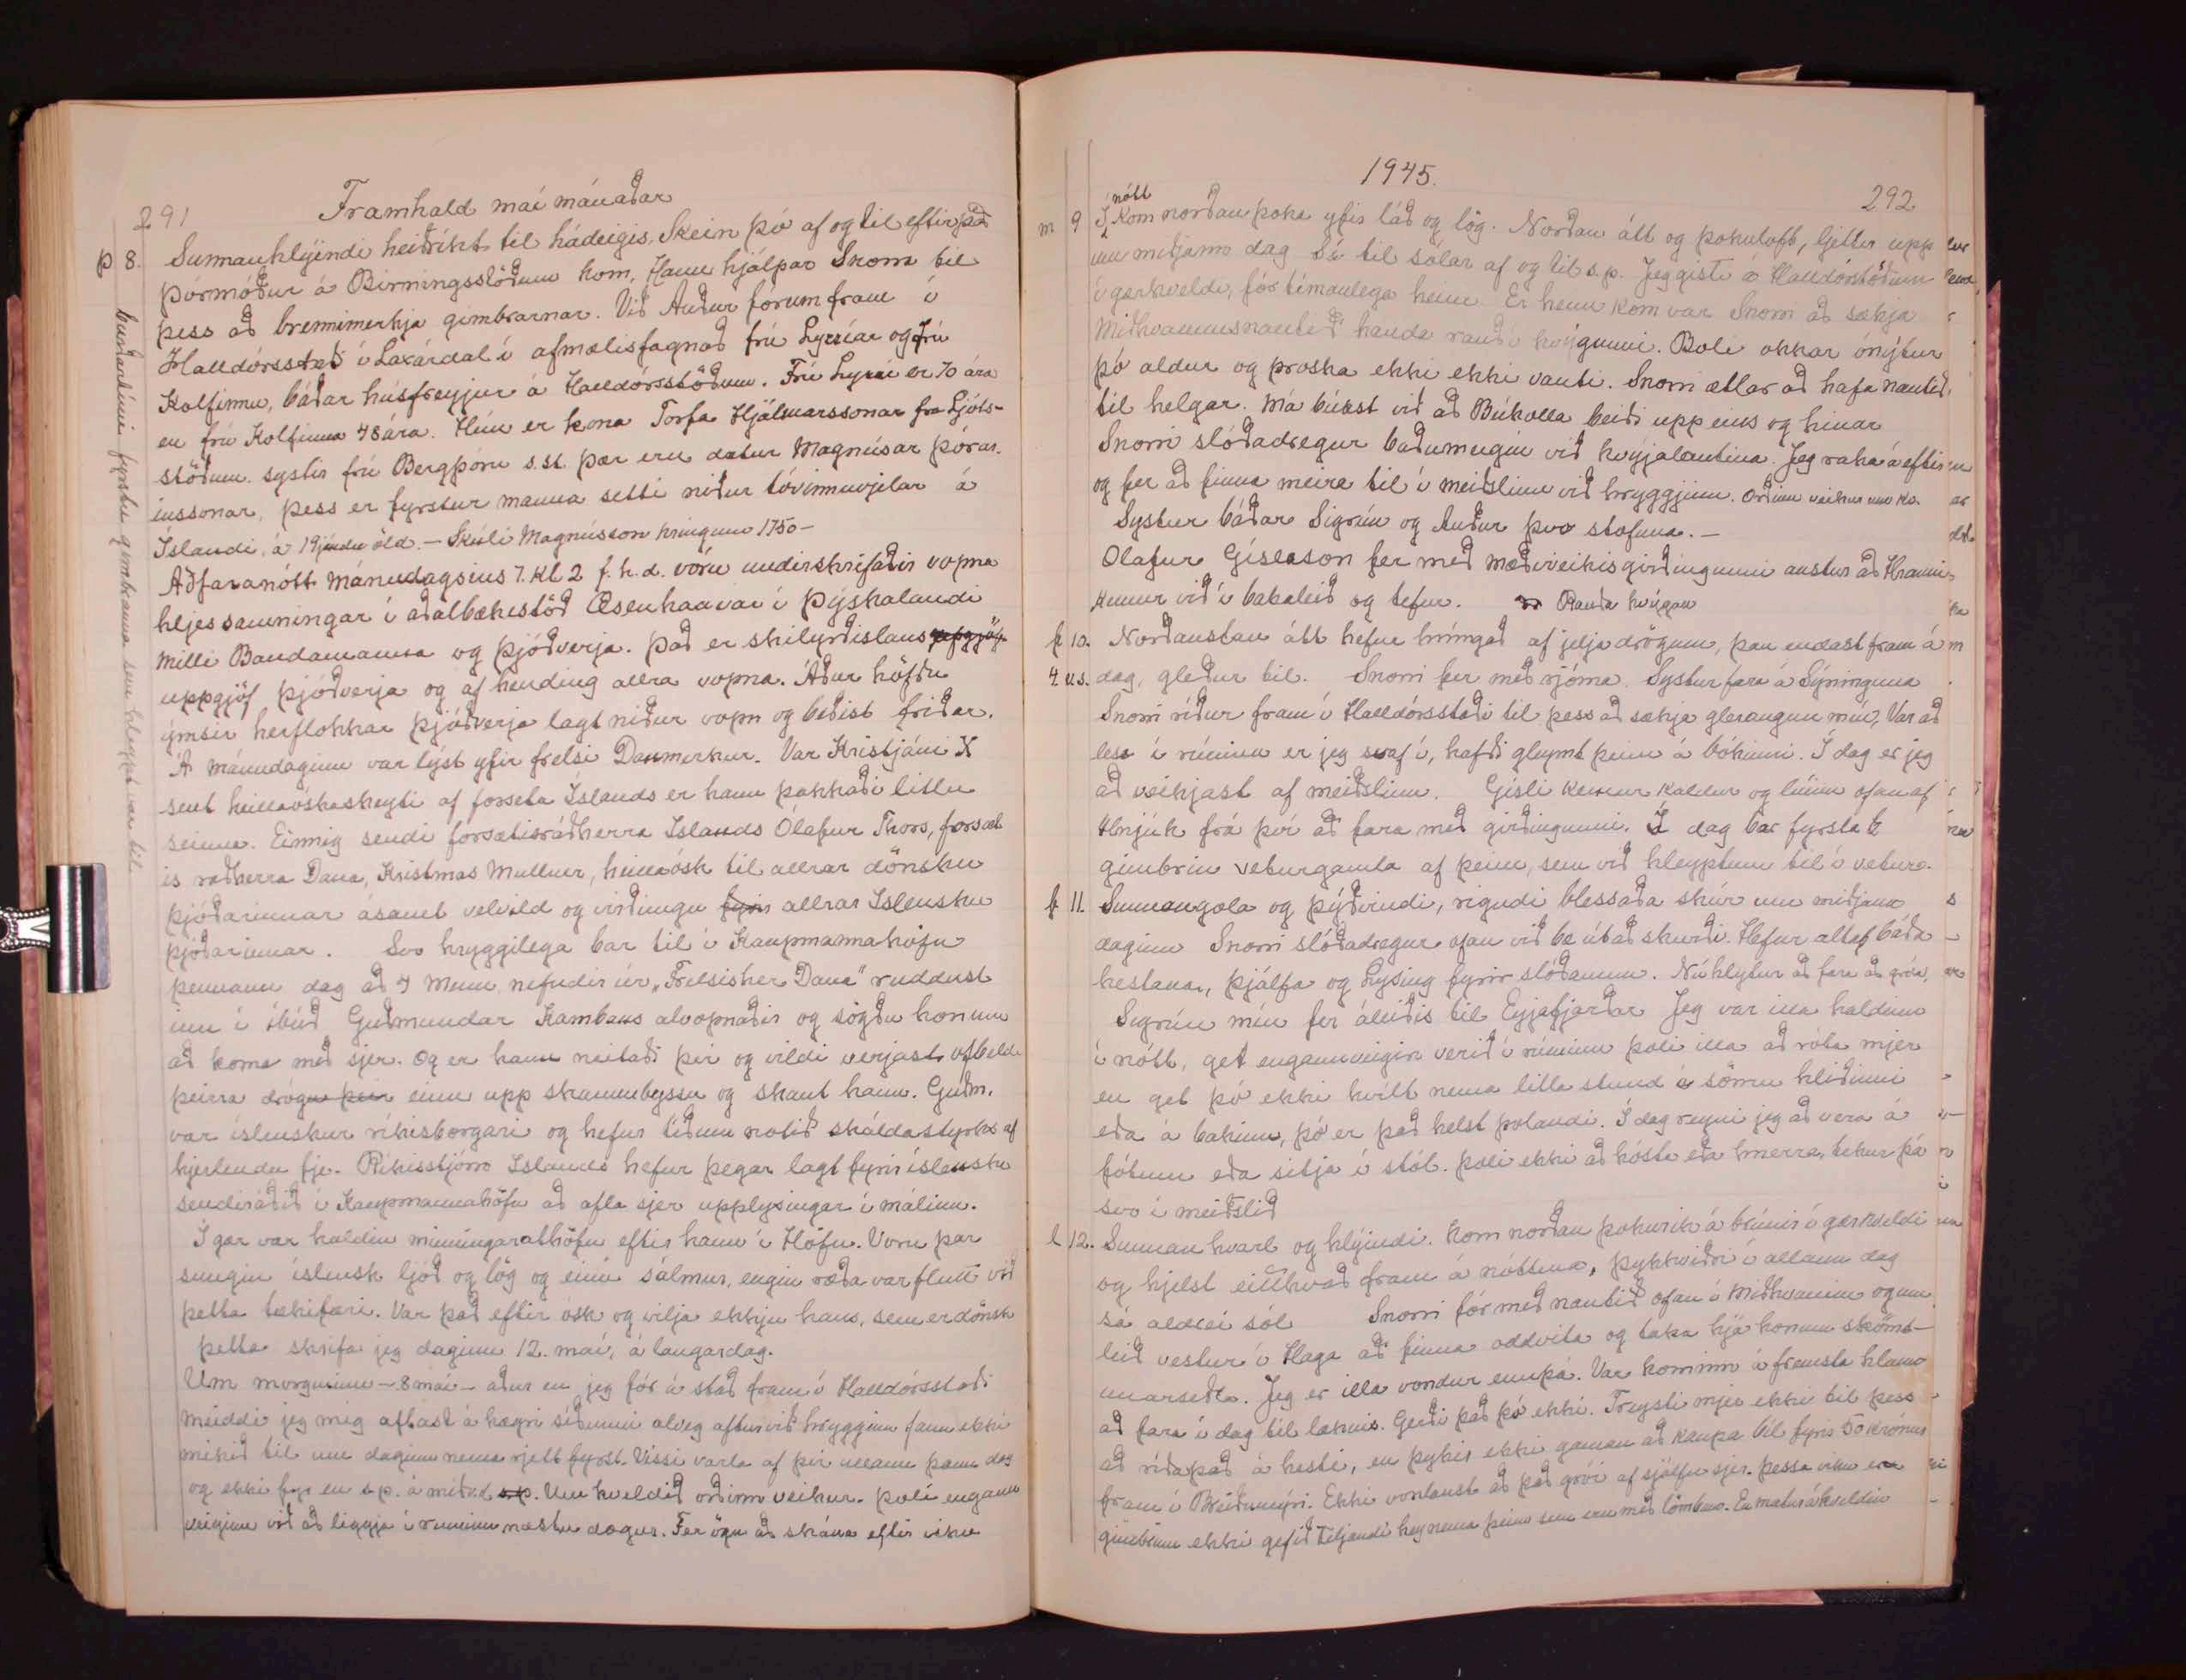 291
Framhald maí mánaðar
þ 8. Sunnanhlýindi heiðríkt til hádeigis. Skein þó af og til eftir það
Þormóður á Birningsstöðum kom. Hann hjálpar Snorra til
þess að brennimerkja gimbrarnar. Við Auður fórum fram í
Halldórsstað í Laxárdal í afmælisfagnað frú Lyzzíar og frú
Kolfinnu, báðar húsfreyjur á Halldórsstöðum. Frú Lyzzí er 70 ára
en frú Kolfinna 48 ára. Hún er kona Torfa Hjálmarssonar frá Ljóts-
stöðum. systir frú Bergþóru s.st. Þær eru dætur Magnúsar Þórar-
inssonar, þess er fyrstur manna setti niður tóvinnuvjelar á
Íslandi, á 19jándu öld. – Skúli Magnússon kringum 1750 –
Aðfaranótt mánudagsins 7. Kl 2 f. h. d. vóru undirskrifaðir vopna
hljessamningar í aðalbækistöð Æsenhaavar í Þýskalandi
milli Bandamanna og Þjóðverja. Það er skilyrðislaus
uppgjöf Þjóðverja og afhending allra vopna. Áður höfðu
ýmsir herflokkar Þjóðverja lagt niður vopn og beðist friðar.
Á mánudaginn var lýst yfir frelsi Danmerkur. Var Kristjáni X
sent heillaóskaskeyti af forseta Íslands er hann þakkaði litlu
seinna. Einnig sendi forsætisráðherra Íslands Ólafur Thors, forsæt
is ráðherra Dana, Kristmas Mullner, heillaósk til allrar dönsku
þjóðarinnar ásamt velvild og virðingu fyrir allrar Íslensku
þjóðarinnar. Svo hryggilega bar til í Kaupmannahöfn
þennann dag að 4 menn nefndir úr „Frelsisher Dana" ruddust
inn í íbúð Guðmundar Kambans alvopnaðir og sögðu honum
að koma með sjer. Og er hann neitaði því og vildi verjast ofbeldi
þeirra drógu þeir einn upp skammbyssu og skaut hann. Guðm.
var íslenskur ríkisborgari og hefur tíðum notið skáldastyrks af
hjerlendu fje. Ríkisstjórn Íslands hefur þegar lagt fyrir íslenska
sendiráðið í Kaupmannahöfn að afla sjer upplýsingar í málinu.
Í gær var haldin minningarathöfn eftir hann í Höfn. Voru þar
sungin íslensk ljóð og lög og einn sálmur, engin ræða var flutt við
þetta tækifæri. Var það eftir ósk og vilja ekkju hans, sem er dönsk
Þetta skrifa jeg daginn 12. maí, á laugardag.
Um morguninn – 8 maí – áður en jeg fór á stað fram í Halldórsstaði
meiddi jeg mig aftast á hægri síðunni alveg aftur við hrygginn fann ekki
mikið til um daginn nema rjett fyrst. Vissi varla af því allann þann dag
og ekki fyr en s.p. á miðvd s.p. Um kveldið orðinn veikur. Þoli engann
veiginn við að liggja í rúminu næstu dægur. Fer ögn að skána eftir viku
hundruðinni fyrstu gimbrarna sem hleypt var til
1945.
292
m 9 Í nótt Kom norðan þoka yfir láð og lög. Norðan átt og þokuloft, ljettir upp
um miðjann dag Sá til sólar af og til s.p. Jeg gisti á Halldórstöðum
í gærkveldi, fór tímanlega heim. Er heim kom var Snorri að sækja
Miðhvammsnautið handa rauðu kvígunni. Boli okkar ónýtur
þó aldur og þroska ekki ekki vanti. Snorri ætlar að hafa nautið,
til helgar. Má búast við að Búkolla beiði upp eins og hinar
Snorri slóðadregur böðumegin við kvíjalautina. Jeg raka á eftir
og fer að finna meira til í meiðslinu við hrygginn. Orðinn veikur um kv.
Systur báðar Sigrún og Auður þvo stofuna. –
Olafur Gíslason fer með mæðiveikisgirðingunni austur að Hrauni,
kemur við í bakaleið og tefur. Rauða kvígan
f 10. Norðaustan átt hefur hríngað af jeljadrögum, þau endast fram á
4. v.s. dag, gleður til. Snorri fer með rjóma. Systur fara á Sýninguna
Snorri ríður fram í Halldórsstaði til þess að sækja gleraugun mín, Var að
lesa í rúminu er jeg svaf í, hafði gleymt þeim á bókinni. Í dag er jeg
að veikjast af meiðslinu. Gísli kemur kaldur og lúinn ofan af
Hnjúk frá því að fara með girðingunni. Í dag bar fyrsta
gimbrin veturgamla af þeim, sem við hleyptum til í vetur.
f 11. Sunnangola og þýðvindi, rigndi blessaða skúr um miðjann
daginn Snorri slóðadregur ofan við bæ útað skurði. Hefur altaf báða
hestana, Þjálfa og Lýsing fyrir slóðanum. Nú hlýtur að fara að gróa,
Sigrún mín fer áleiðis til Eyjafjarðar Jeg var illa haldinn
í nótt, get engannveigin verið í rúminu þoli illa að róta mjer
en get þó ekki hvílt nema litla stund á sömu hliðinni
eða á bakinu, þó er það helst þolandi. Í dag reyni jeg að vera á
fótum eða sitja í stól. Þoli ekki að hósta eða hnerra, tekur þá
svo í meiðslið
l 12. Sunnan hvarl og hlýindi. Kom norðan þokurik á brúnir í gærkveldi
og hjelst eitthvað fram á nóttina, Þykkviðri í allann dag
sá aldrei sól Snorri fór með nautið ofan í Miðhvamm og um
leið vestur í Haga að finna oddvita og taka hjá honum skömt-
unarseðla. Jeg er illa vondur ennþá. Var kominn á fremsta hlunn
að fara í dag til læknis. Gerði það þó ekki. Treysti mjer ekki til þess
að ríða það á hesti, en þykir ekki gaman að kaupa bíl fyrir 50 krónur
fram í Breiðumýri. Ekki vonlaust að það grói af sjálfu sjer. Þessa viku er
gimbrum ekki gefið teljandi hey nema þeim sem eru með lömbum. En matur á kveldin